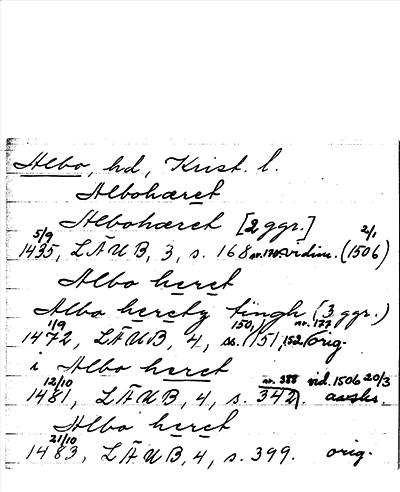 Albo, hd, Krist. l.
Albohæret
Albohæret [2 ggr.]
5/9 2/1
1435, LÄUB, 3, s. 168 nr. 170. vidim. (1506)
Albo heret
Albo heretz tingh (3 ggr.)
1/9 150, nr. 177
1472, LÄUB, 4, ss. 151, 152, orig.
i Albo heret
12/10 nr. 388 vid. 1506 20/3
1481, LÄUB, 4, s. 342. avskr.
Albo heret
21/10
1483, LÄUB, 4, s. 399. orig.